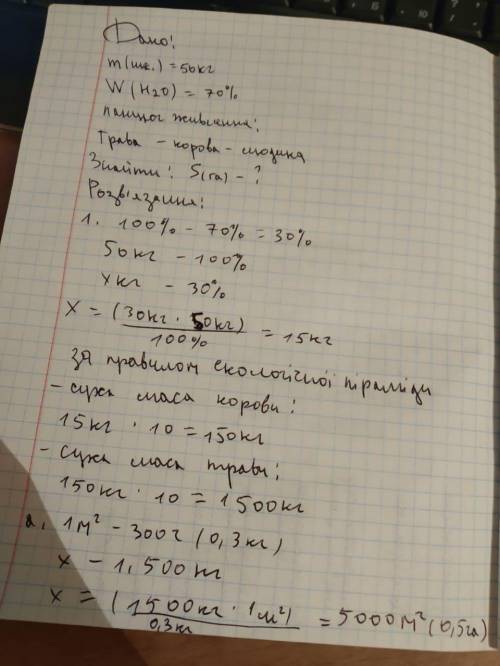 Дано:
m(шк.) = 50кг
W(H2O) = 70%
ланцюг живлення:
Трава - корова - людина
Знайти: S(га) - ?
Розв'язання:
1. 100% - 70% = 30%
50кг - 100%
xкг - 30%
X = (30кг · 50кг) / 100% = 15кг
За правилом екологічної піраміди
- суха маса корови:
15кг · 10 = 150кг
- суха маса трави:
150кг · 10 = 1500кг
1м² - 300г (0,3кг)
x - 1.500кг
x = (1500кг · 1м²) / 0,3кг = 5000м² (0,5га)